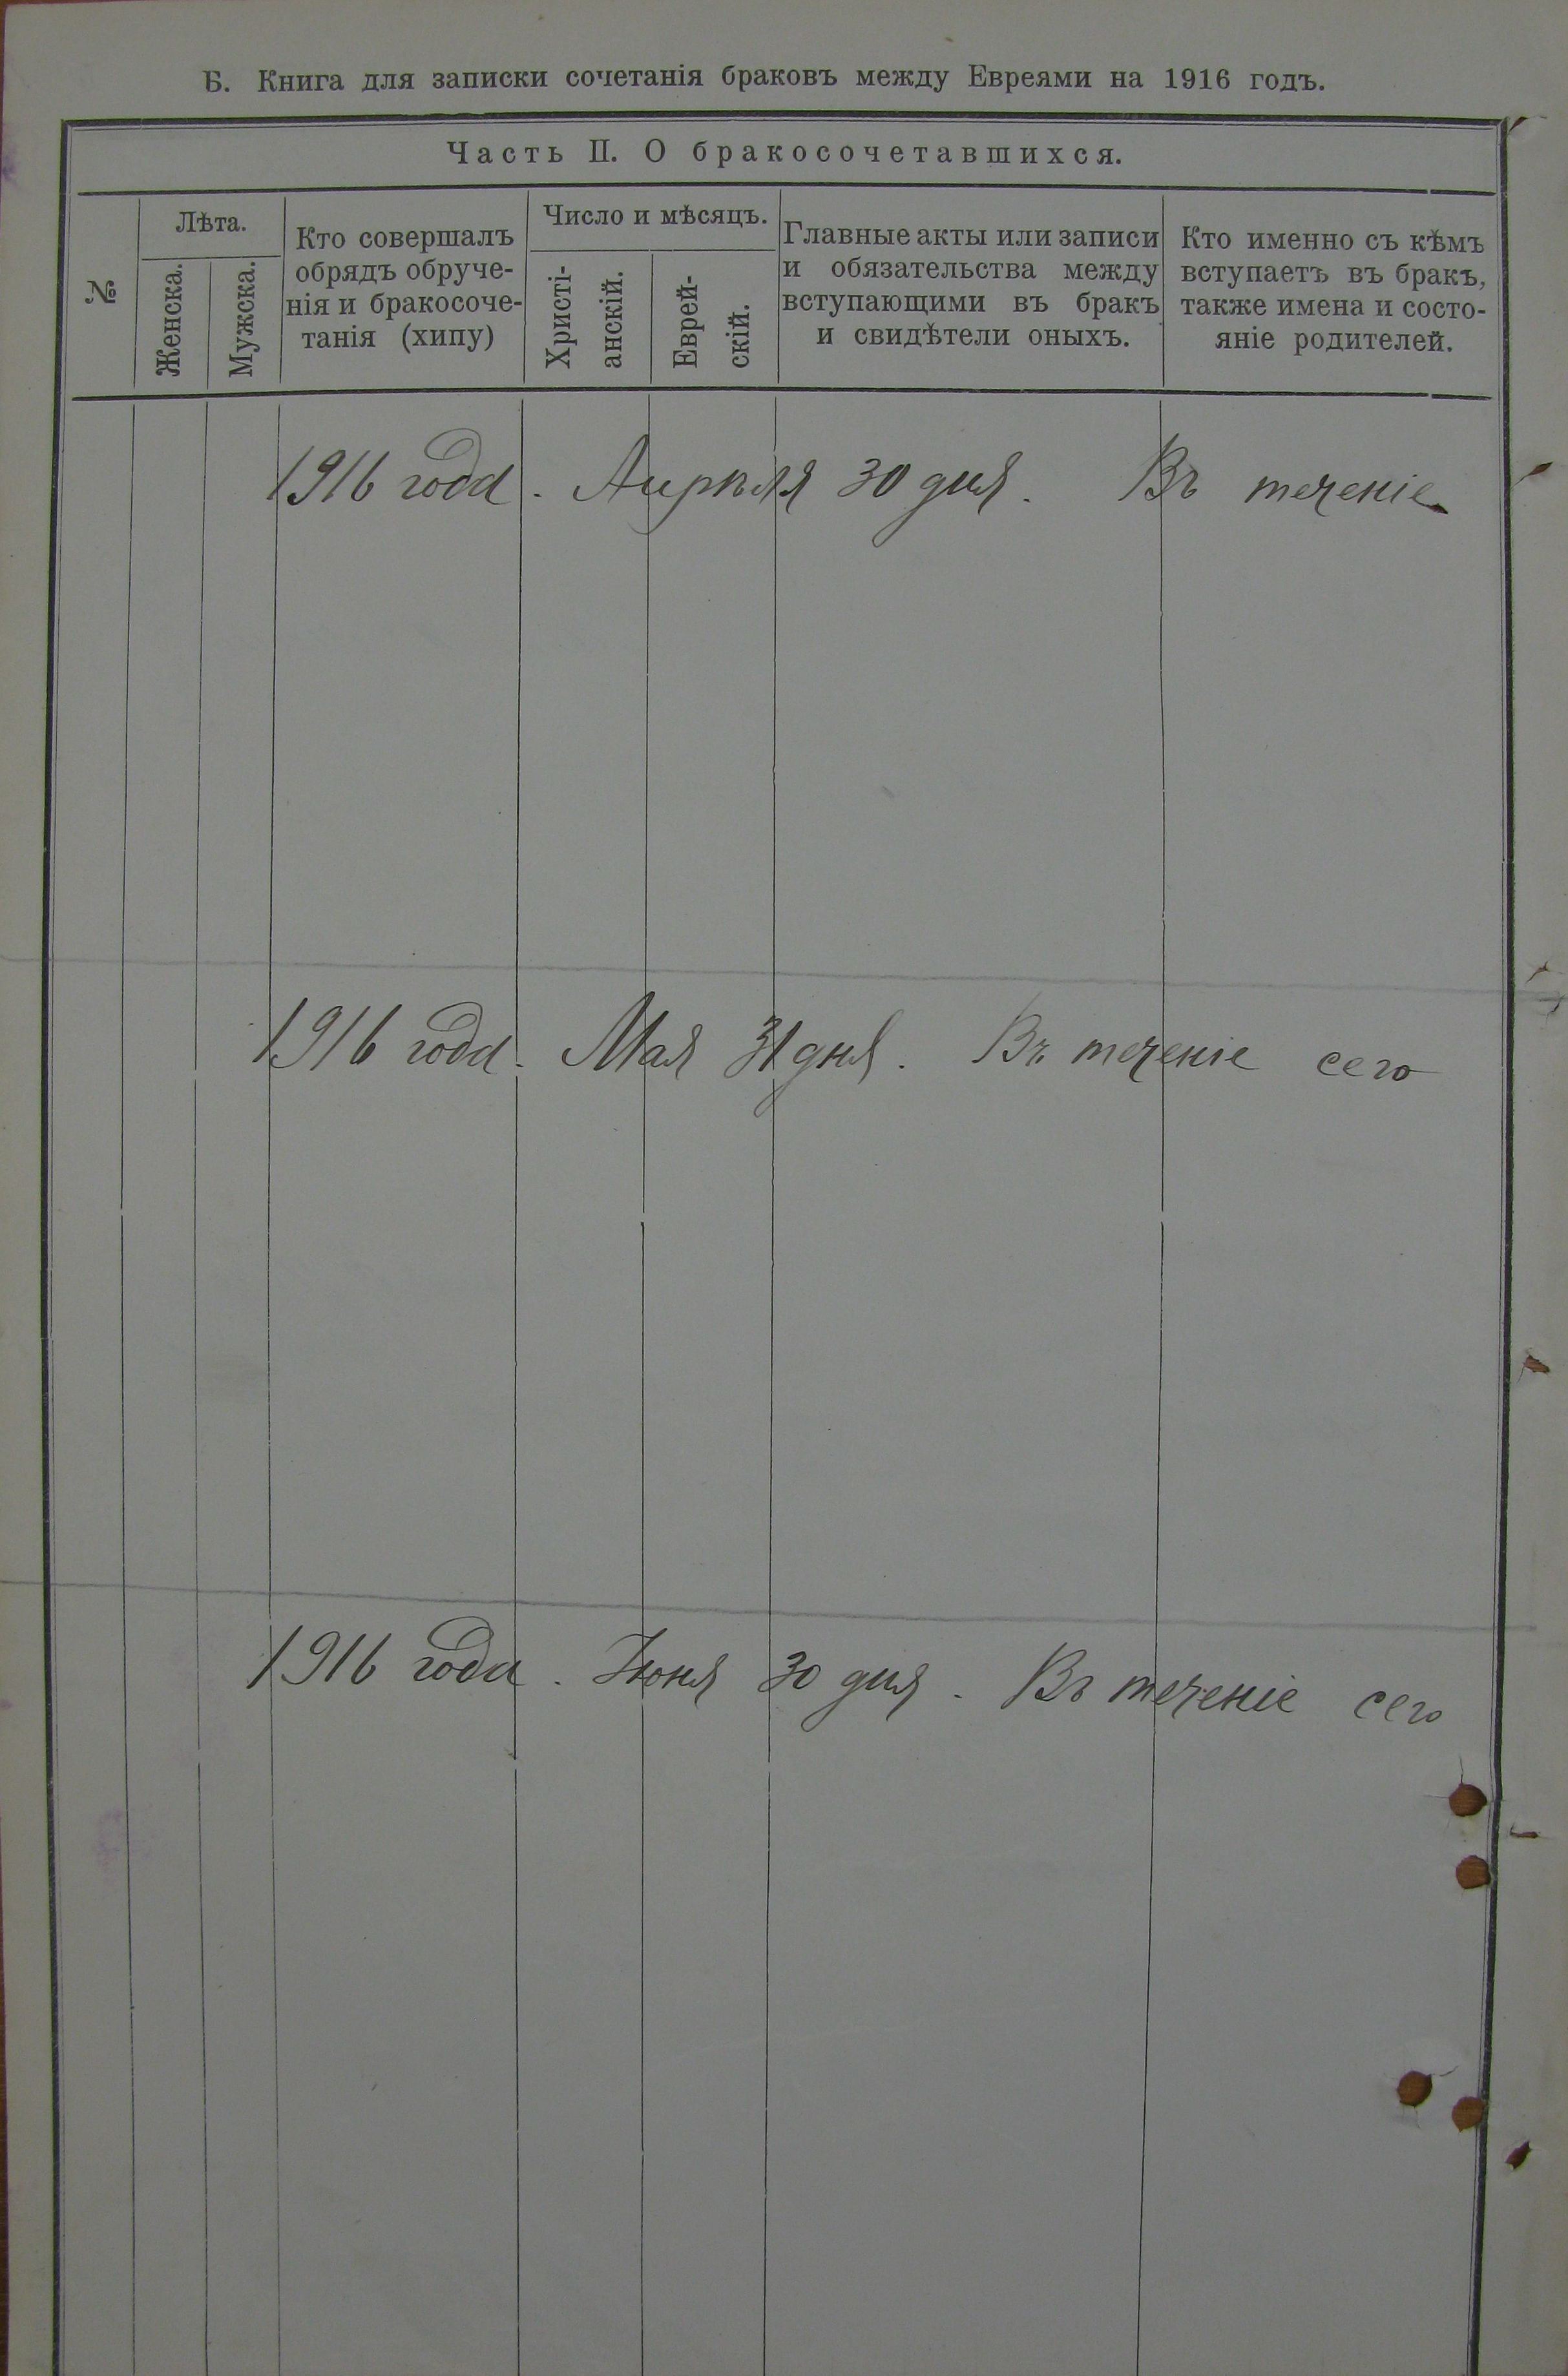 Б. Книга для записки сочетанія браковъ между Евреями на 1916 годъ.
Часть II. О бракосочетавшихся.
№
Лѣта.
Женска.
Мужска.
Кто совершалъ
обрядъ обруче-
нія и бракосоче-
танія (хипу)
Число и мѣсяцъ.
Христі-
анскій.
Еврей-
скій.
Главные акты или записи
и обязательства между
вступающими въ бракъ
и свидѣтели оныхъ.
Кто именно съ кѣмъ
вступаетъ въ бракъ,
также имена и состо-
яніе родителей.
1916 года. Апрѣля 30 дня. Въ теченіе
1916 года. Мая 31 дня. Въ теченіе сего
1916 года. Іюня 30 дня. Въ теченіе сего